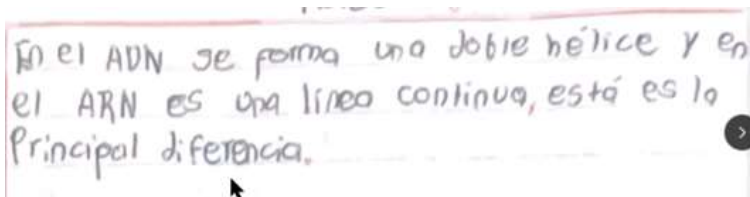 En el ADN se forma una doble hélice y en
el ARN es una línea continua, está es la
Principal diferencia.